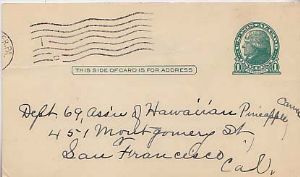 THIS SIDE OF CARD IS FOR ADDRESS
Dept 69, Ass'n of Hawaiian Pineapple
451 Montgomery St,
San Francisco
Cal.